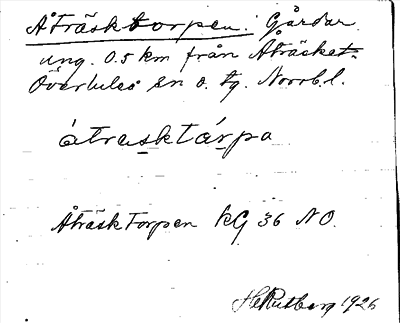 Åträsktorpen. Gårdar
ung. 0.5 km från Åträsket.
Överluleå sn o. tg. Norrb.l.
åtrasktårpa
Åträsktorpen kG 36 NO.
H Rutberg 1926